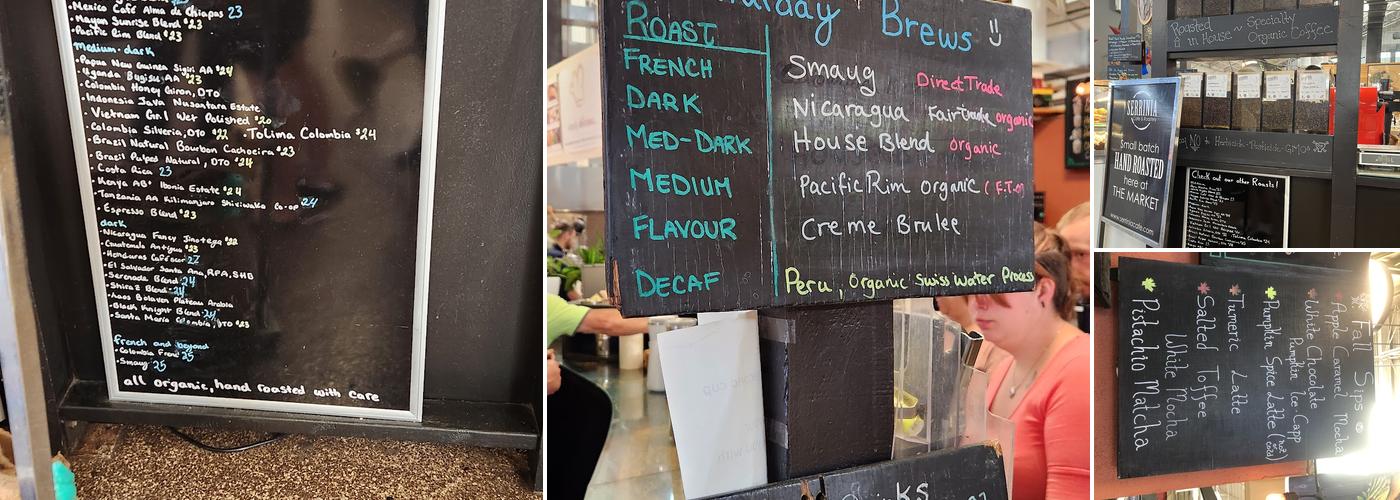 • Mexico Café Alma de Chiapas 23
• Mayan Sunrise Blend $23
• Pacific Rim Blend $23
medium-dark
• Papua New Guinea Sigiri AA $24
• Uganda Bugisu AA $23
• Colombia Honey Giron, OTO
• Indonesia Java Nusantara Estate
• Vietnam Gn.1 Wet Polished $20
• Colombia Silveria, OTO $22 • Tolima Colombia $24
• Brazil Natural Bourbon Cachoeira $23
• Brazil Pulped Natural, OTO $24
• Costa Rica 23
• Kenya AB+ Ibonia Estate $24
• Tanzania AA Kilimanjaro Shiviwaka Co-op 24
• Espresso Blend $23
dark
• Nicaragua Fancy Jinotega $22
• Guatemala Antigua $23
• Honduras Cafescor 27
• El Salvador Santa Ana, RFA, SHG
• Serenade Blend 24
• Shiraz Blend 24
• Laos Bolaven Plateau Arabia
• Black Knight Blend 24
• Santa Maria Colombia, OTO $23
french and beyond
• Colombia French 25
• Smaug 25
all organic, hand roasted with care
Brews
ROAST
FRENCH Smaug Direct Trade
DARK Nicaragua Fair Trade organic
MED-DARK House Blend organic
MEDIUM Pacific Rim organic (F.T.O)
FLAVOUR Creme Brulee
DECAF Peru, Organic Swiss Water Process
Roasted in House ~ Specialty
Organic Coffee
SERRINIA
Small batch
HAND ROASTED
here at
THE MARKET
www.serriniacafe.com
NO to Herbicide-Pesticide-GMO's
Check out our other Roasts!
Fall Sips
Apple Caramel Mocha
White Chocolate
Pumpkin Ice Capp
Pumpkin Spice Latte (hot/iced)
Tumeric Latte
Salted Toffee
White Mocha
Pistachio Matcha